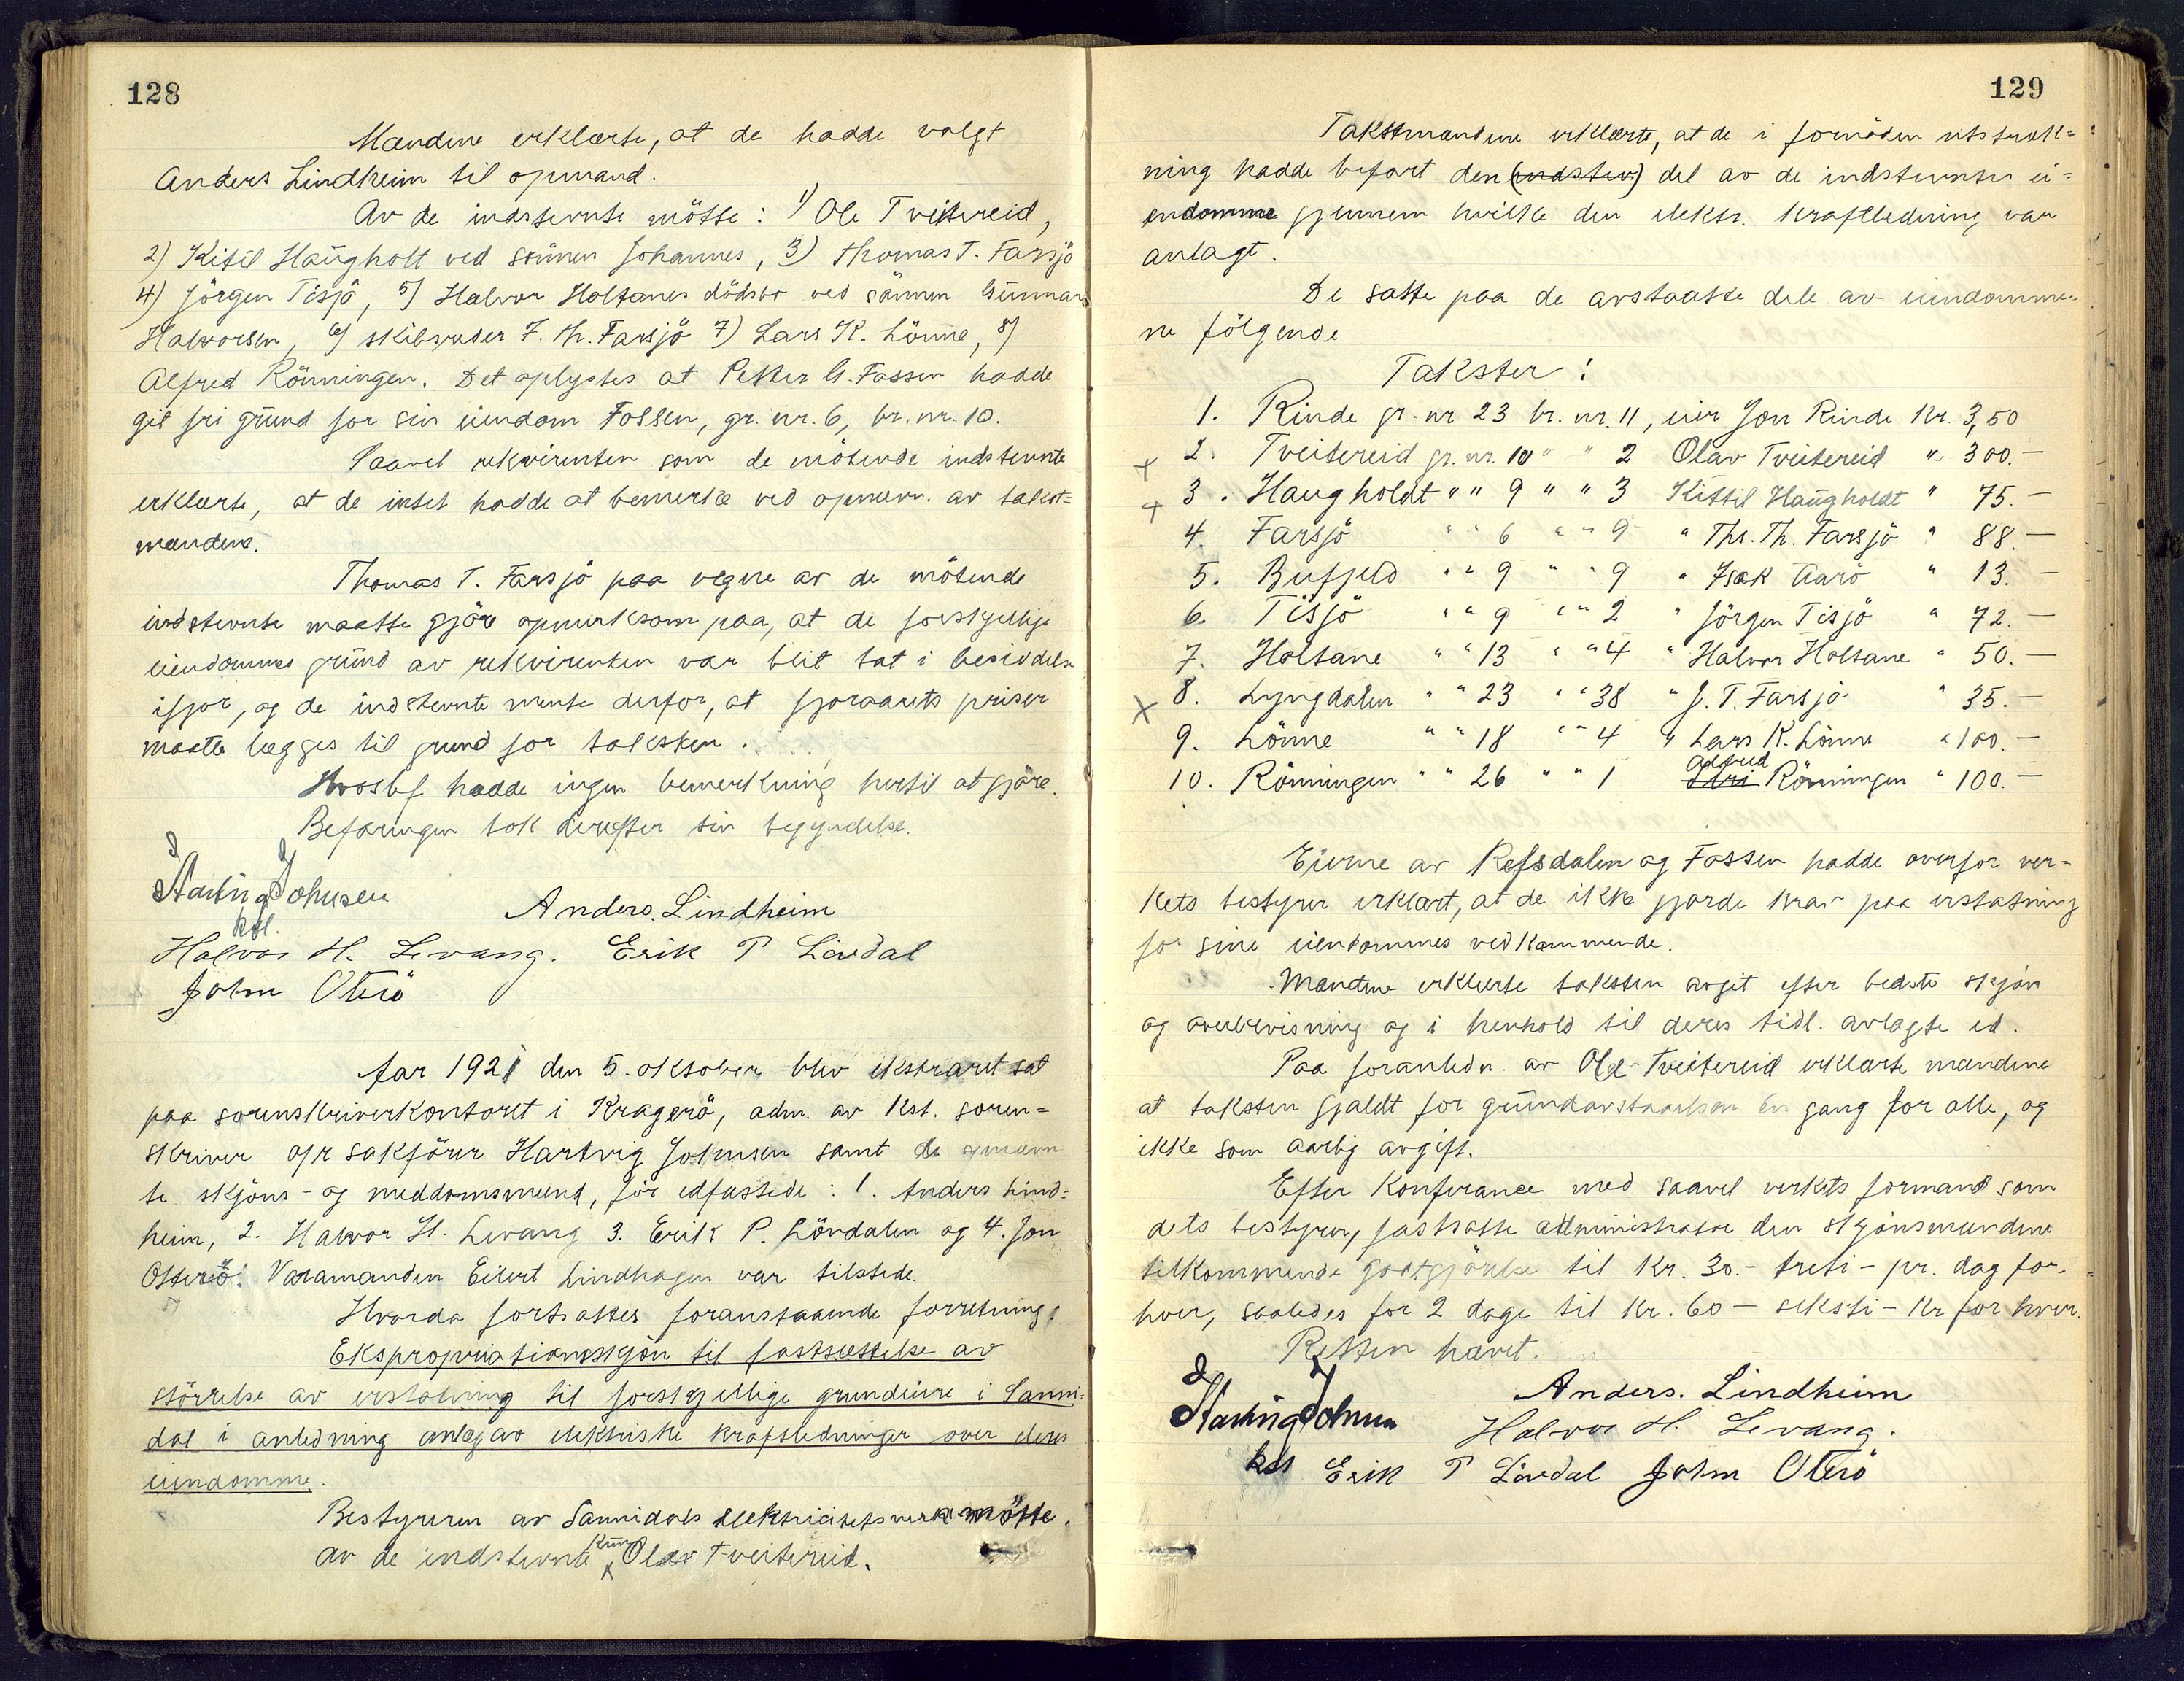 128
Mændene erklærte, at de hadde valgt
Anders Lindheim til opmand.
Av de indstevnte mötte: 1) Ole Tveitereid,
2) Kitil Haugholt ved sönnen Johannes, 3) Thomas T. Farsjö
4) Jörgen Tisjö, 5) Halvor Holtanes dödsbo ved sönnen Gunnar
Halvorsen, 6) skibsreder J. Th. Farsjö 7) Lars K. Lönne, 8)
Alfred Rönningen. Det oplystes at Petter G. Fossen hadde
git fri grund for sin eiendom Fossen, gr. nr. 6, br. nr. 10.
Saavel rekvirenten som de mötende indstevnte
erklærte, at de intet hadde at bemerke ved opnævn. av takst-
mændene.
Thomas T. Farsjö paa vegne av de mötende
indstevnte maatte gjöre opmerksom paa, at de forskjellige
eiendommes grund av rekvirenten var blit tat i besiddelse
ifjor, og de indstevnte mente derfor, at fjoraarets priser
maatte lægges til grund for taksten.
hadde ingen bemerkning hertil at gjöre.
Befaringen tok derefter sin begyndelse.
Hartvig Johnsen
kst.
Anders. Lindheim
Halvor H. Levang. Erik P Lövdal
John Oterö
Aar 1921 den 5. oktober blev ekstraret sat
paa sorenskriverkontoret i Kragerö, adm. av kst. soren-
skriver o/r sakförer Hartvig Johnsen samt de opnævn
te skjöns- og meddomsmænd, för edfæstede: 1. Anders Lind-
heim, 2. Halvor H. Levang 3. Erik P. Lövdalen og 4. Jon
Otterö. Varamanden Eilert Lindhagen var tilstede.
Hvorda fortsattes foranstaaende forretning:
Ekspropriationsskjön til fastsættelse av
störrelse av erstatning til forskjellige grundeiere i Sanni-
dal i anledning anlæg av elektriske kraftledninger over deres
eiendomme.
Bestyreren av Sannidals elektricitetsverk mötte.
Av de indstevnte kun Olav Tveitereid.
129
Takstmændene erklærte, at de i fornöden utstræk-
ning hadde befart den (indstev) del av de indstevntes ei-
endomme gjennem hvilke den elektr. kraftledning var
anlagt.
De satte paa de avstaatte dele av eiendomme-
ne fölgende
Takster:
1. Rinde gr. nr 23 br. nr. 11, eier Jon Rinde Kr. 3,50
x 2. Tveitereid gr. nr. 10 " " 2 Olav Tveitereid " 300.—
x 3. Haugholdt " " 9 " " 3 Kittil Haugholdt " 75.—
4. Farsjö " " 6 " " 9 " Ths. Th. Farsjö " 88.—
5. Bufjeld " " 9 " " 9 " Isak Aarö " 13.—
6. Tisjö " " 9 " " 2 " Jörgen Tisjö " 72.—
7. Holtane " " 13 " " 4 " Halvor Holtane " 50.—
x 8. Lyngdalen " " 23 " " 38 " J. T. Farsjö " 35.—
9. Lönne " " 18 " " 4 " Lars K. Lönne " 100.—
10. Rönningen " " 26 " " 1 Alfred Rönningen " 100.—
Eierne av Refsdalen og Fossen hadde overfor ver-
kets bestyrer erklært, at de ikke gjorde krav paa erstatning
for sine eiendommes vedkommende.
Mændene erklærte taksten avgit efter bedste skjön
og overbevisning og i henhold til deres tidl. avlagte ed.
Paa foranledn. av Ole Tveitereid erklærte mændene
at taksten gjaldt for grundavstaaelsen en gang for alle, og
ikke som aarlig avgift.
Efter konferance med saavel verkets formand som
dets bestyrer, fastsatte administrator den skjönsmændene
tilkommende godtgjörelse til kr. 30.- treti - pr. dag for
hver, saaledes for 2 dage til kr. 60 - seksti - kr for hver.
Retten hævet.
Hartvig Johnsen
kst
Anders. Lindheim
Halvor H. Levang.
Erik P Lövdal John Oterö